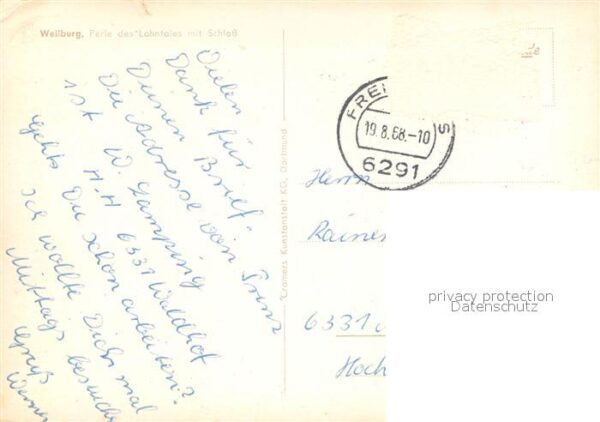 Weilburg, Perle des Lahntales mit Schloß
Vielen
Dank für
Deinen Brief.
Die Adresse von Prinz
ist W. Gamping
H.H 6331 Waldhof
Gehts Du schon arbeiten?
Ich wollte Dich mal
Mittags besuchen
Gruß
Werner
Cramers Kunstanstalt KG, Dortmund
FREI S
19.8.68.-10
6291
Herrn
Rainer
6331
Hoch
privacy protection
Datenschutz